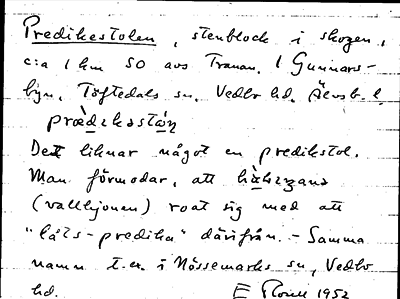 Predikestolen, stenblock i skogen,
c:a 1 km SO avs Tranan. I Gunnars-
byn, Töftedals sn. Vedbo hd. Älvsb. l.
prædikastån
Det liknar något en predikstol.
Man förmodar, att
(vallhjonen) roat sig med att
"låts-predika" därifrån. - Samma
namn t.ex. i Nössemarks sn, Vedbo
hd. E 1952